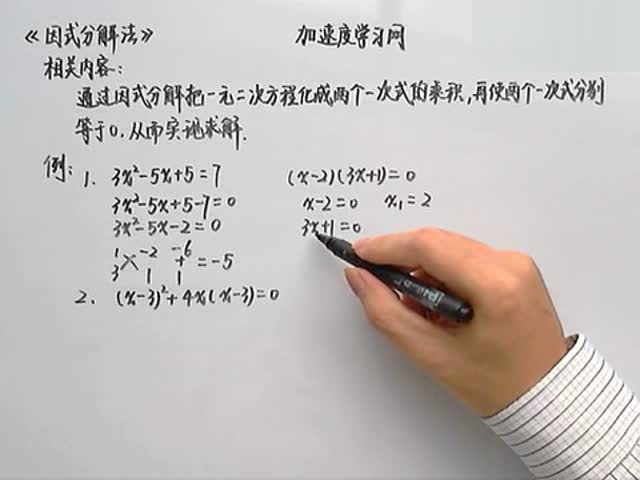 《因式分解法》 加速度学习网
相关内容：
通过因式分解把一元二次方程化成两个一次式的乘积,再使两个一次式分别
等于0,从而实现求解.
例：1、3x²-5x+5=7
3x²-5x+5-7=0
3x²-5x-2=0
1 -2 -6
+ =-5
3 1 1
2、(x-3)²+4x(x-3)=0
(x-2)(3x+1)=0
x-2=0 x₁=2
3x+1=0